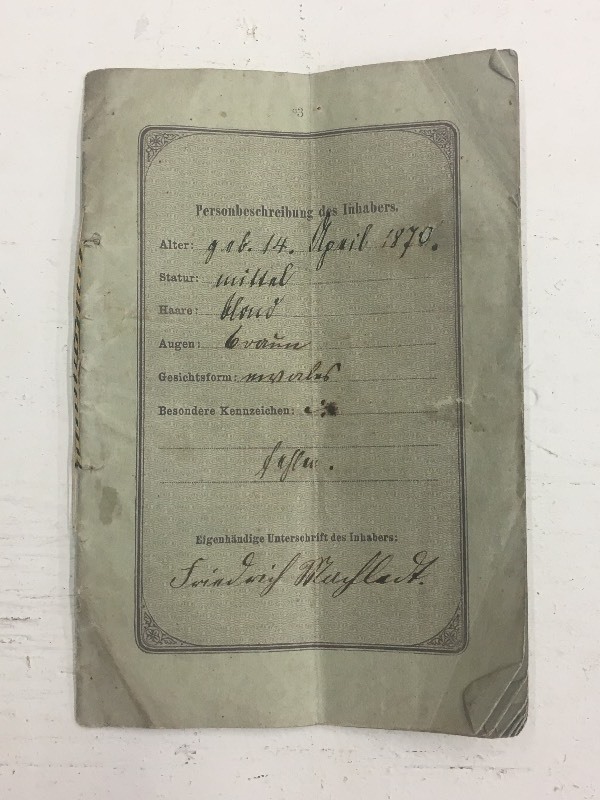 3
Personbeschreibung des Inhabers.
Alter: geb. 14. April 1870.
Statur: mittel
Haare: blond
Augen: braun
Gesichtsform:
Besondere Kennzeichen:
fehlen.
Eigenhändige Unterschrift des Inhabers:
Friedrich Machledt.